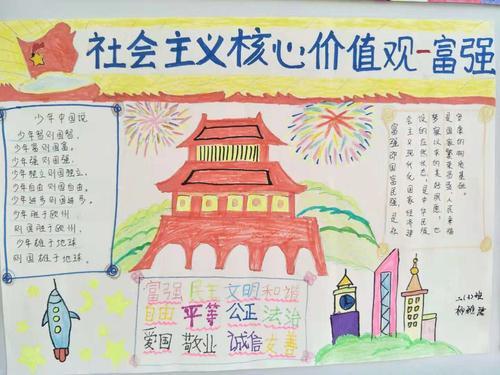 社会主义核心价值观-富强
少年中国说
少年智则国智,
少年富则国富。
少年强则国强,
少年独立则国独立。
少年自由则国自由。
少年进步则国进步。
少年胜于欧州,
则国胜于欧州,
少年雄于地球
则国雄于地球。
富强即国富民强,是社
会主义现代化国家经济建
设的应然状态,是中华民族
梦寐以求的美好夙愿,也
是国家繁荣昌盛、人民幸福
安康的物质基础。
富强 民主 文明 和谐
自由 平等 公正 法治
爱国 敬业 诚信 友善